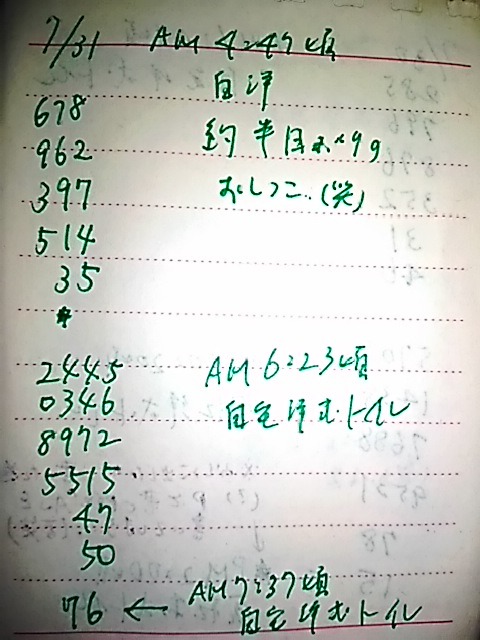 7/31 AM 4:47頃
自洋
678
962 約半日ぶり
397 おしっこ(笑)
514
35
*
2445 AM 6:23頃
0346 自宅洋式トイレ
8972
5515
47
50
76 ← AM 7:37頃
自宅洋式トイレ